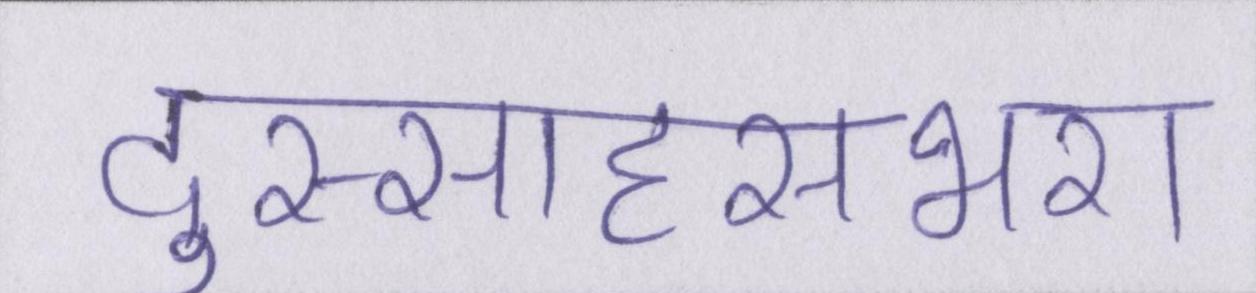 दुस्साहसभरा